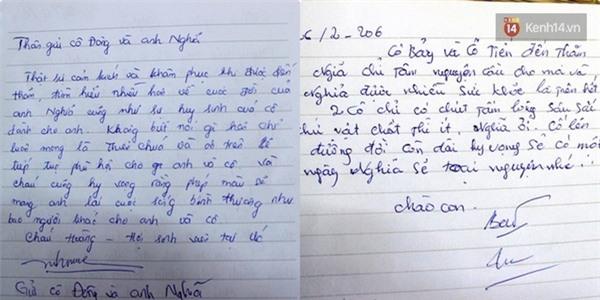 Thân gửi cô Đông và anh Nghĩa
Thật sự cảm kích và khâm phục khi được đến
thăm, tìm hiểu nhiều hơn về cuộc đời của
anh Nghĩa cũng như sự hy sinh của cô
dành cho anh. Không biết nói gì hơn chỉ
luôn mong là Thiên chúa và ơn trên sẽ
tiếp tục phù hộ cho anh và cô. Và
cháu cũng hy vọng rằng phép màu sẽ
mang anh lại cuộc sống bình thường như
bao người khác cho anh và cô.
Cháu Hoàng - Học sinh
Gửi cô Đông và anh Nghĩa
/2-206
Cô Bảy và Cô Tiên đến Thăm
Nghĩa chỉ Tâm nguyện cầu cho má và
Nghĩa được nhiều Sức khỏe là trên hết
2 Cô chỉ có chút Tấm lòng sâu sắc
vật chất thì ít, Nghĩa ơi. Cố lên
đường đời còn dài hy vọng sẽ có một
ngày Nghĩa sẽ toại nguyện nhé
chào con.
Kenh14.vn